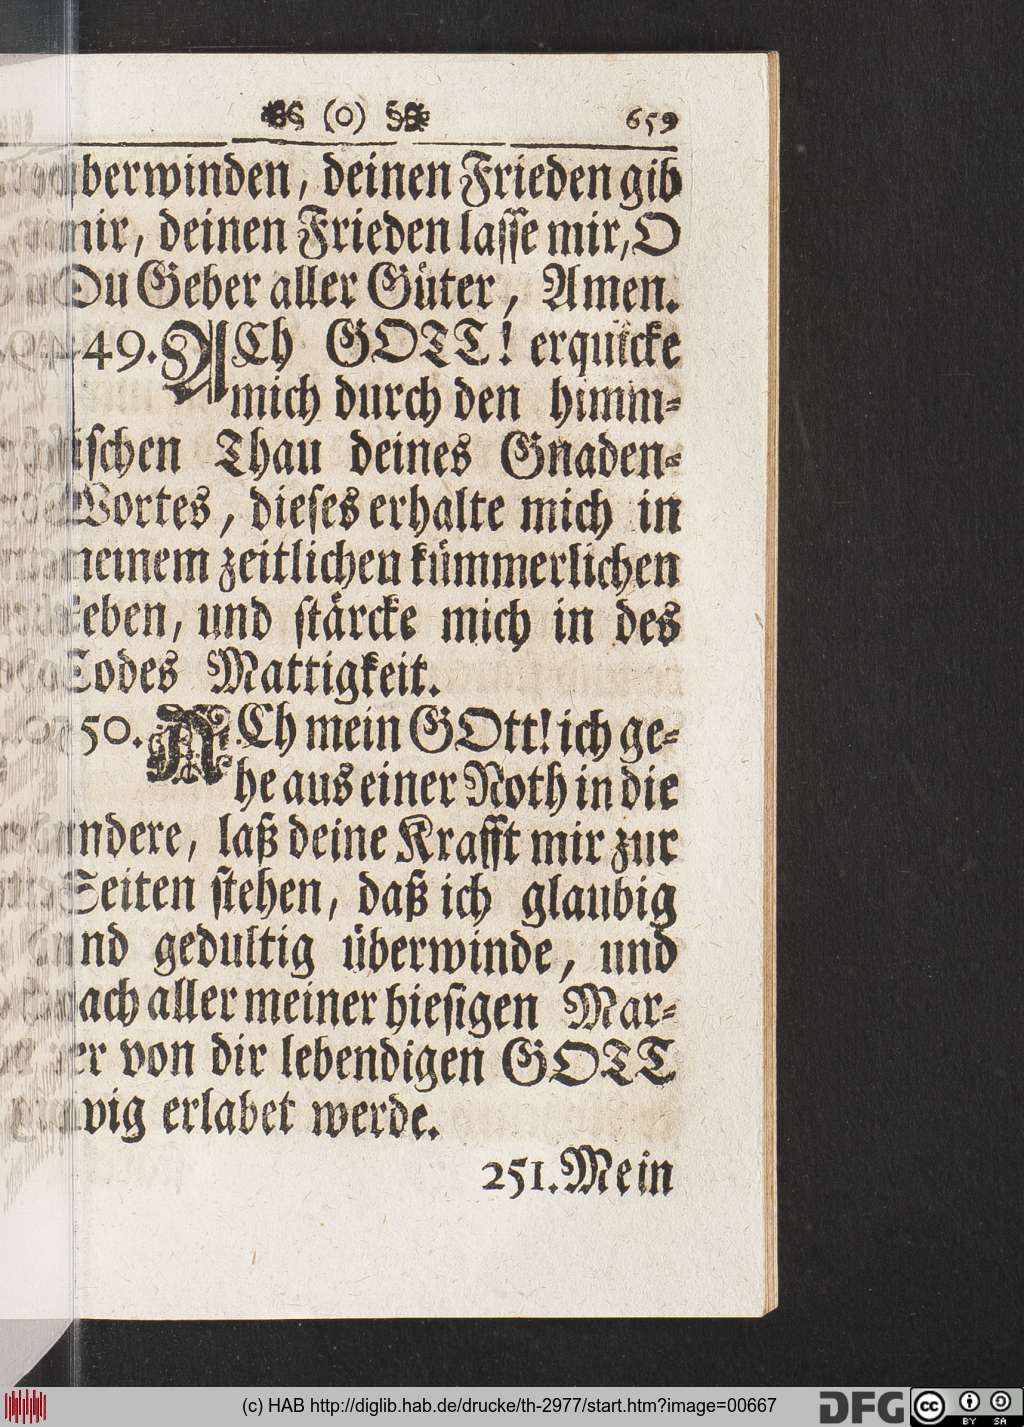 (o) 659
überwinden, deinen Frieden gib
mir, deinen Frieden lasse mir, O
Du Geber aller Güter, Amen.
249. ACh GOTT! erquicke
mich durch den himm-
lischen Thau deines Gnaden-
Wortes, dieses erhalte mich in
meinem zeitlichen kümmerlichen
Leben, und stärcke mich in des
Todes Mattigkeit.
250. ACh mein GOtt! ich ge-
he aus einer Noth in die
andere, laß deine Krafft mir zur
Seiten stehen, daß ich glaubig
und gedultig überwinde, und
nach aller meiner hiesigen Mar-
ter von dir lebendigen GOTT
ewig erlabet werde.
251. Mein
(c) HAB http://diglib.hab.de/drucke/th-2977/start.htm?image=00667
DFG
cc BY SA